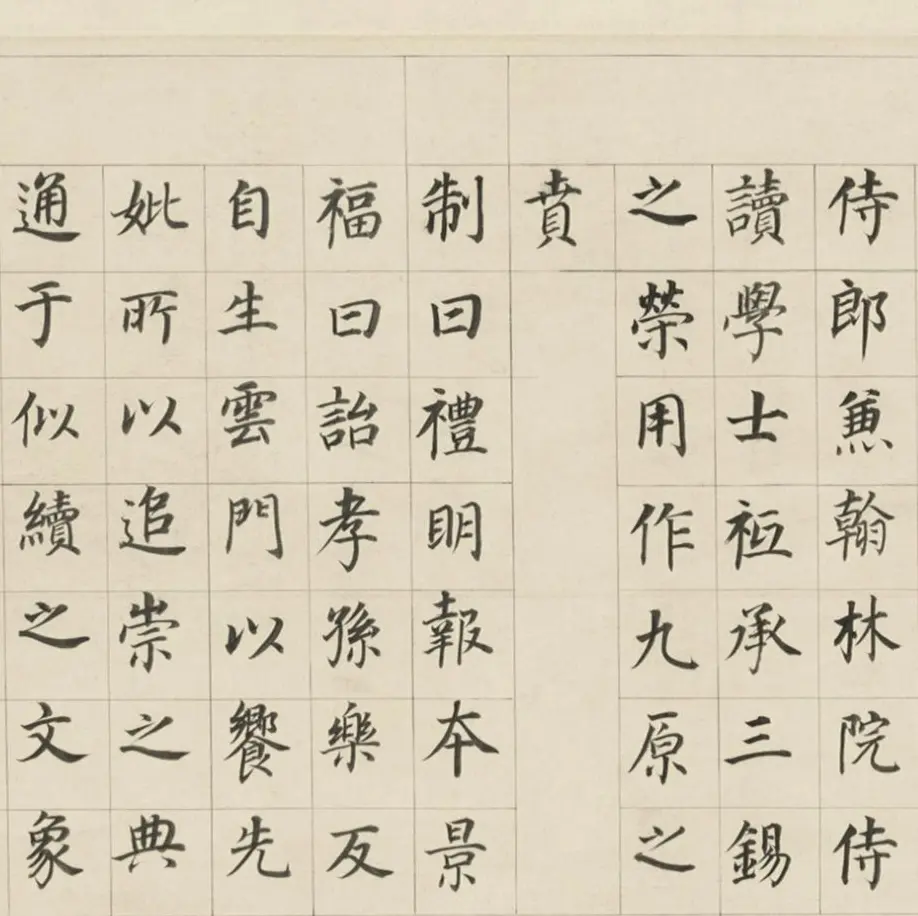 侍郎兼翰林院侍
讀學士祗承三錫
之榮用作九原之
賁
制曰禮明報本景
福曰詒孝孫樂反
自生雲門以饗先
妣所以追崇之典
通于似續之文象